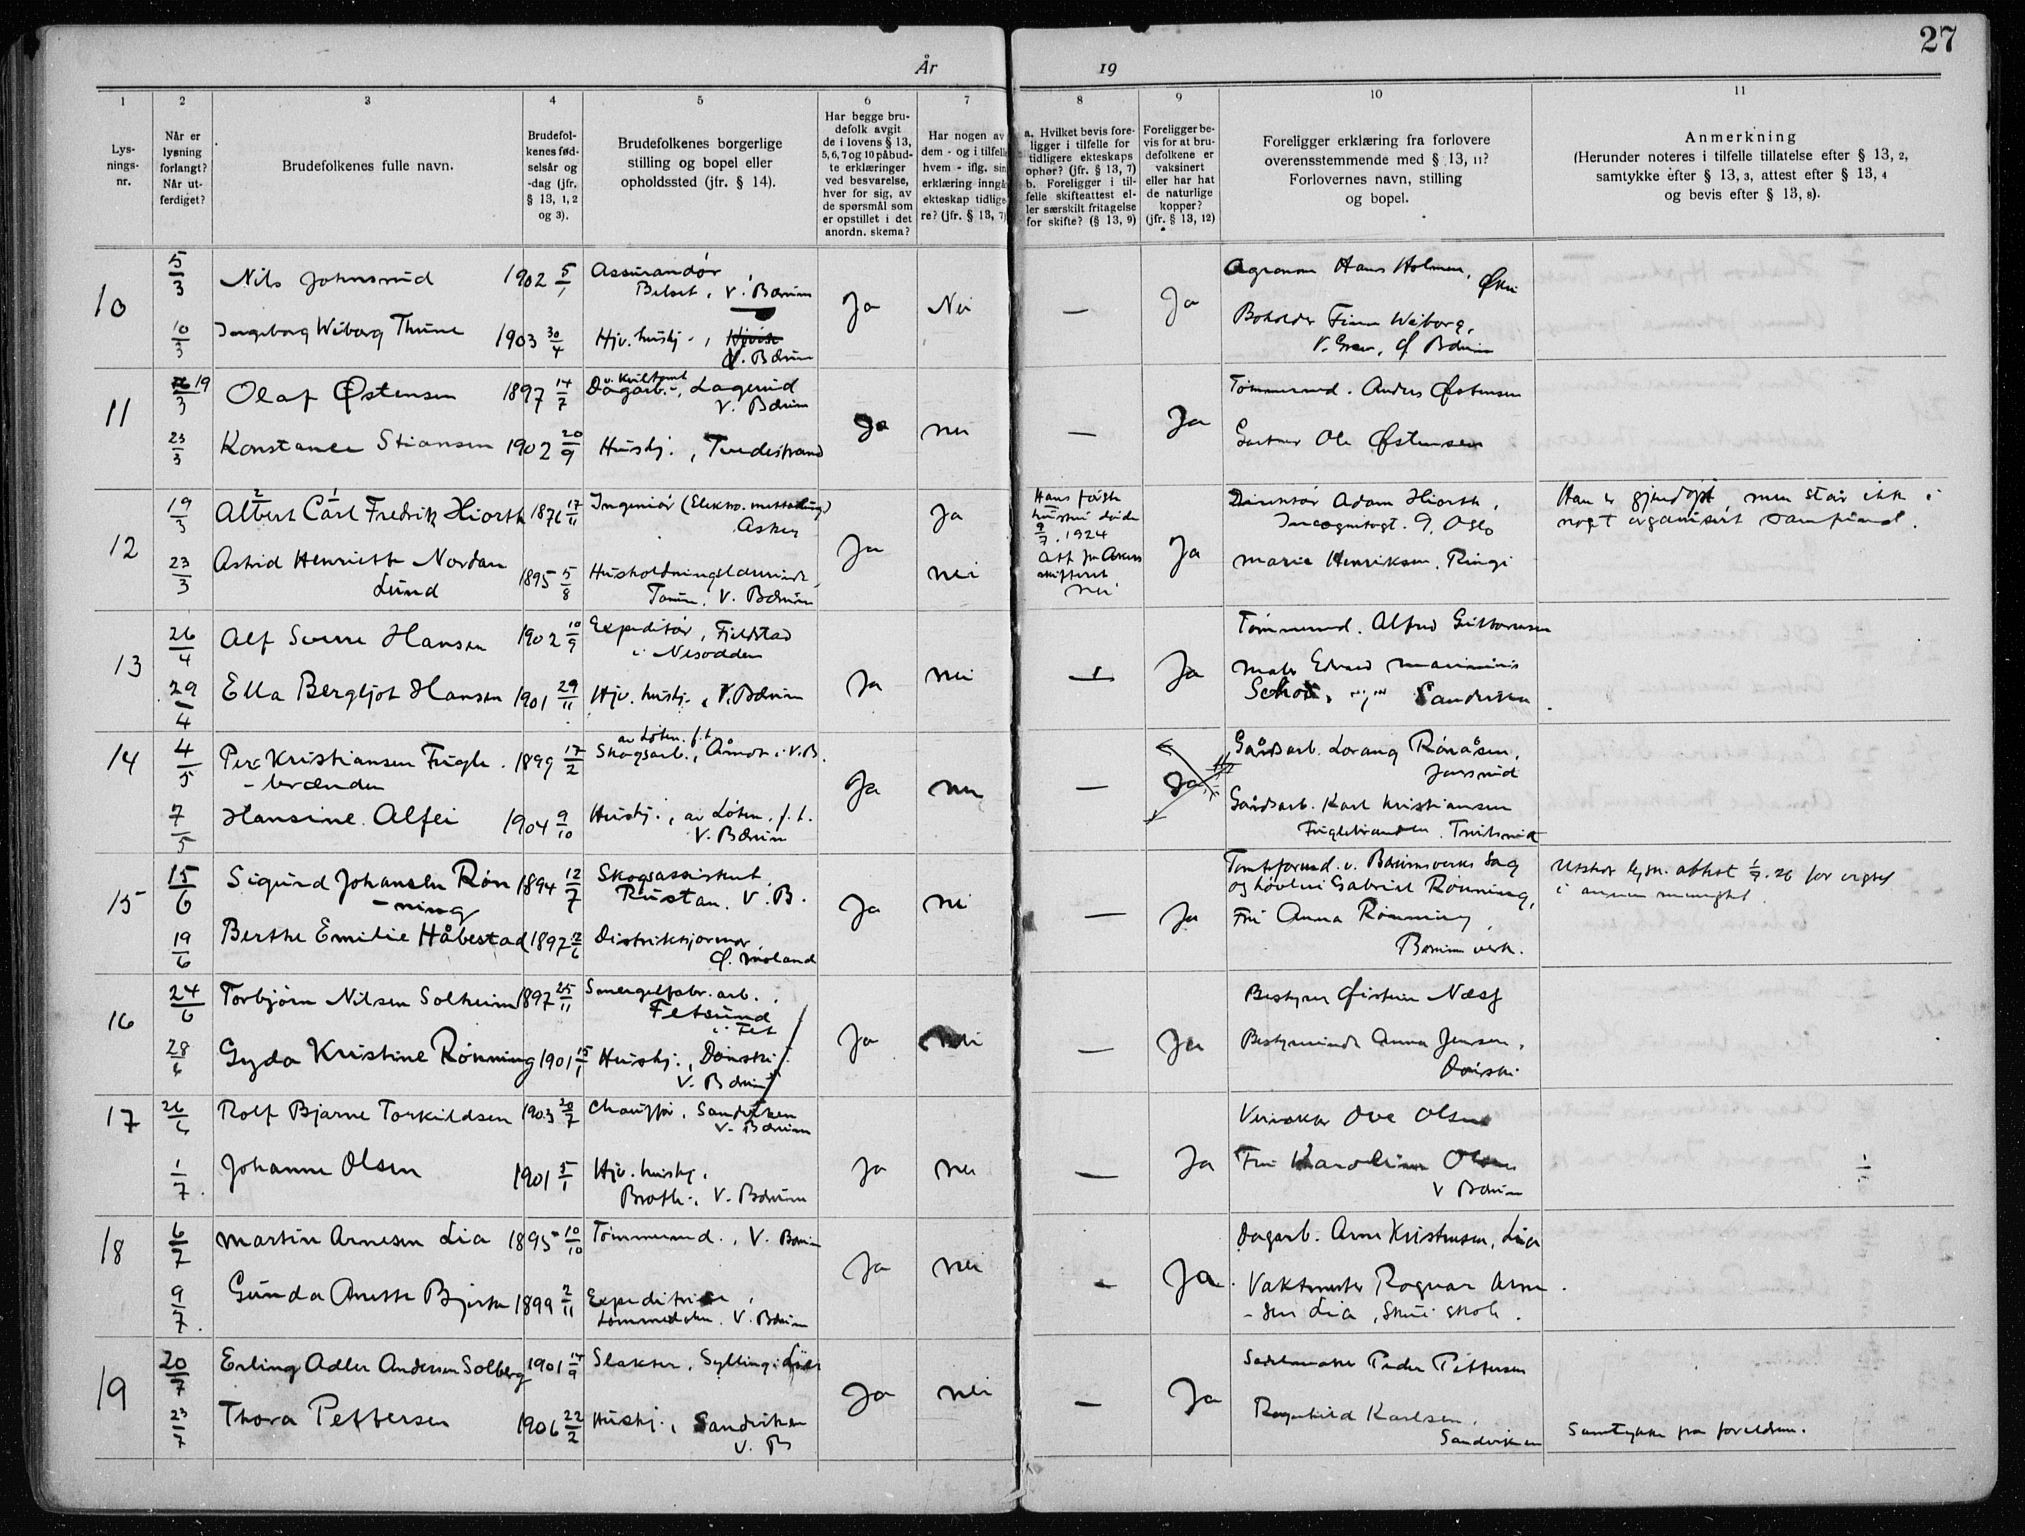 27
År 19
1 2 3 4 5 6 7 8 9 10 11
Lys-
nings-
nr.
Når er
lysning
forlangt?
Når ut-
ferdiget?
Brudefolkenes fulle navn.
Brudefol-
kenes fød-
selsår og
-dag (jfr.
§ 13, 1, 2
og 3).
Brudefolkenes borgerlige
stilling og bopel eller
opholdssted (jfr. § 14).
Har begge bru-
defolk avgit
de i lovens § 13,
5, 6, 7 og 10 påbud-
te erklæringer
ved besvarelse,
hver for sig, av
de spørsmål som
er opstillet i det
anordn. skema?
Har nogen av
dem - og i tilfelle
hvem - iflg. sin
erklæring inngåt
ekteskap tidlige-
re? (jfr. § 13, 7)
a. Hvilket bevis fore-
ligger i tilfelle for
tidligere ekteskaps
ophør? (jfr. § 13, 7)
b. Foreligger i til-
felle skifteattest el-
ler særskilt fritagelse
for skifte? (§ 13, 9)
Foreligger be-
vis for at bru-
defolkene er
vaksinert
eller har hat
de naturlige
kopper?
(jfr. § 13, 12)
Foreligger erklæring fra forlovere
overensstemmende med § 13, 11?
Forlovernes navn, stilling
og bopel.
Anmerkning
(Herunder noteres i tilfelle tillatelse efter § 13, 2,
samtykke efter § 13, 3, attest efter § 13, 4
og bevis efter § 13, 8).
10
5/3 Nils Johnsrud 1902 5/1 Assurandør
Belset, V. Bærum
Ja Nei — Ja
Agronom Hans Holmen,
10/3 Ingeborg Wiborg Thune 1903 30/4 Hjv. hushj.,
V. Bærum
Boholder Finn Wiborg,
V. Grav, Ø Bærum
11
19/3 Olaf Østensen 1897 14/7 Dagarb., Lagerud
V. Bærum
Ja nei — Ja
Tømmermd. Anders Østensen
23/3 Konstance Stiansen 1902 20/9 Hushj., Tvedestrand
Gartner Ole Østensen
12
19/3 Albert Carl Fredrik Hiorth 1876 17/11 Ingeniør
Asker
Ja Ja
Hans forste
hustru døde
9/7. 1924
Att. fra Akers
skifteret
nei
Ja
Direktør Adam Hiorth,
Incognitogt. 9, Oslo
Han er gjendøpt, men står ikke i
noget organisert samfund.
23/3 Astrid Henriette Nordan
Lund 1895 5/8 Husholdningslærerinde,
Tanum, V. Bærum
nei
Marie Henriksen, Ringi
13
26/4 Alf Sverre Hansen 1902 10/9 Expeditør, Fjeldstad
i Nesodden
Ja nei — Ja
Tømmermd. Alfred Guttormsen
29/4 Ella Bergljot Hansen 1901 29/11 Hjv. hushj., V. Bærum
Maler Edvard
Schou, Sandviken
14
4/5 Per Kristiansen Fugle-
-brænden 1899 17/2
av Løten, f.t.
Skogsarb., V. B.
Ja nei — Ja
Gårdsarb. Lorang Rønåsen,
Jonsrud
7/5 Hansine Alfei 1904 9/10 Hushj., av Løten, f. t.
V. Bærum
Gårdsarb. Karl Kristiansen
Fuglebrænden
15
15/6 Sigurd Johansen Røn-
-ning 1894 12/7 Skogsassistent,
Rustan, V. B.
Ja nei — Ja
Tomtformd. v. Bærumsverks Sag
og Høvleri Gabriel Rønning,
Utskr. lysn. attest 1/7.26 for vigsel
i annen menighet.
19/6 Berthe Emilie Håbestad 1897 12/6 Distriktsjormor,
Ø. Moland
Fru Anna Rønning,
Bærums verk.
16
24/6 Torbjørn Nilsen Solheim 1897 25/11 Smergelfabr. arb.,
Fetsund
i Fet
Ja nei — Ja
Bestyrer Øistein Næss
28/6 Gyda Kristine Rønning 1901 15/1 Hushj., Dønski
V. Bærum
Bestyrerinde Anna Jensen,
Dønski
17
26/6 Rolf Bjarne Torkildsen 1903 20/7 Chauffør, Sandviken
V. Bærum
Ja nei — Ja
Ove Olsen
1/7. Johanne Olsen 1901 5/1 Hjv. hushj.,
V. Bærum
Fru Karoline Olsen
V Bærum
18
6/7 Martin Arnesen Lia 1895 10/10 Tømmermd., V. Bærum
Ja nei — Ja.
Dagarb. Arne Kristensen, Lia
9/7. Gunda Anette Bjerke 1899 2/11 Expeditrise,
Lommedalen, V. Bærum
Vaktmester Ragnar Arne-
-sen Lia, Skui skole.
19
20/7 Erling Adler Andersen Solberg 1901 14/9 Slakter, Sylling i Lier
Ja nei — Ja
Sadelmaker Peder Pettersen
23/7 Thora Pettersen 1906 22/2 Hushj., Sandviken
V. B
Ragnhild Karlsen,
Sandviken
Samtykke fra foreldrene.